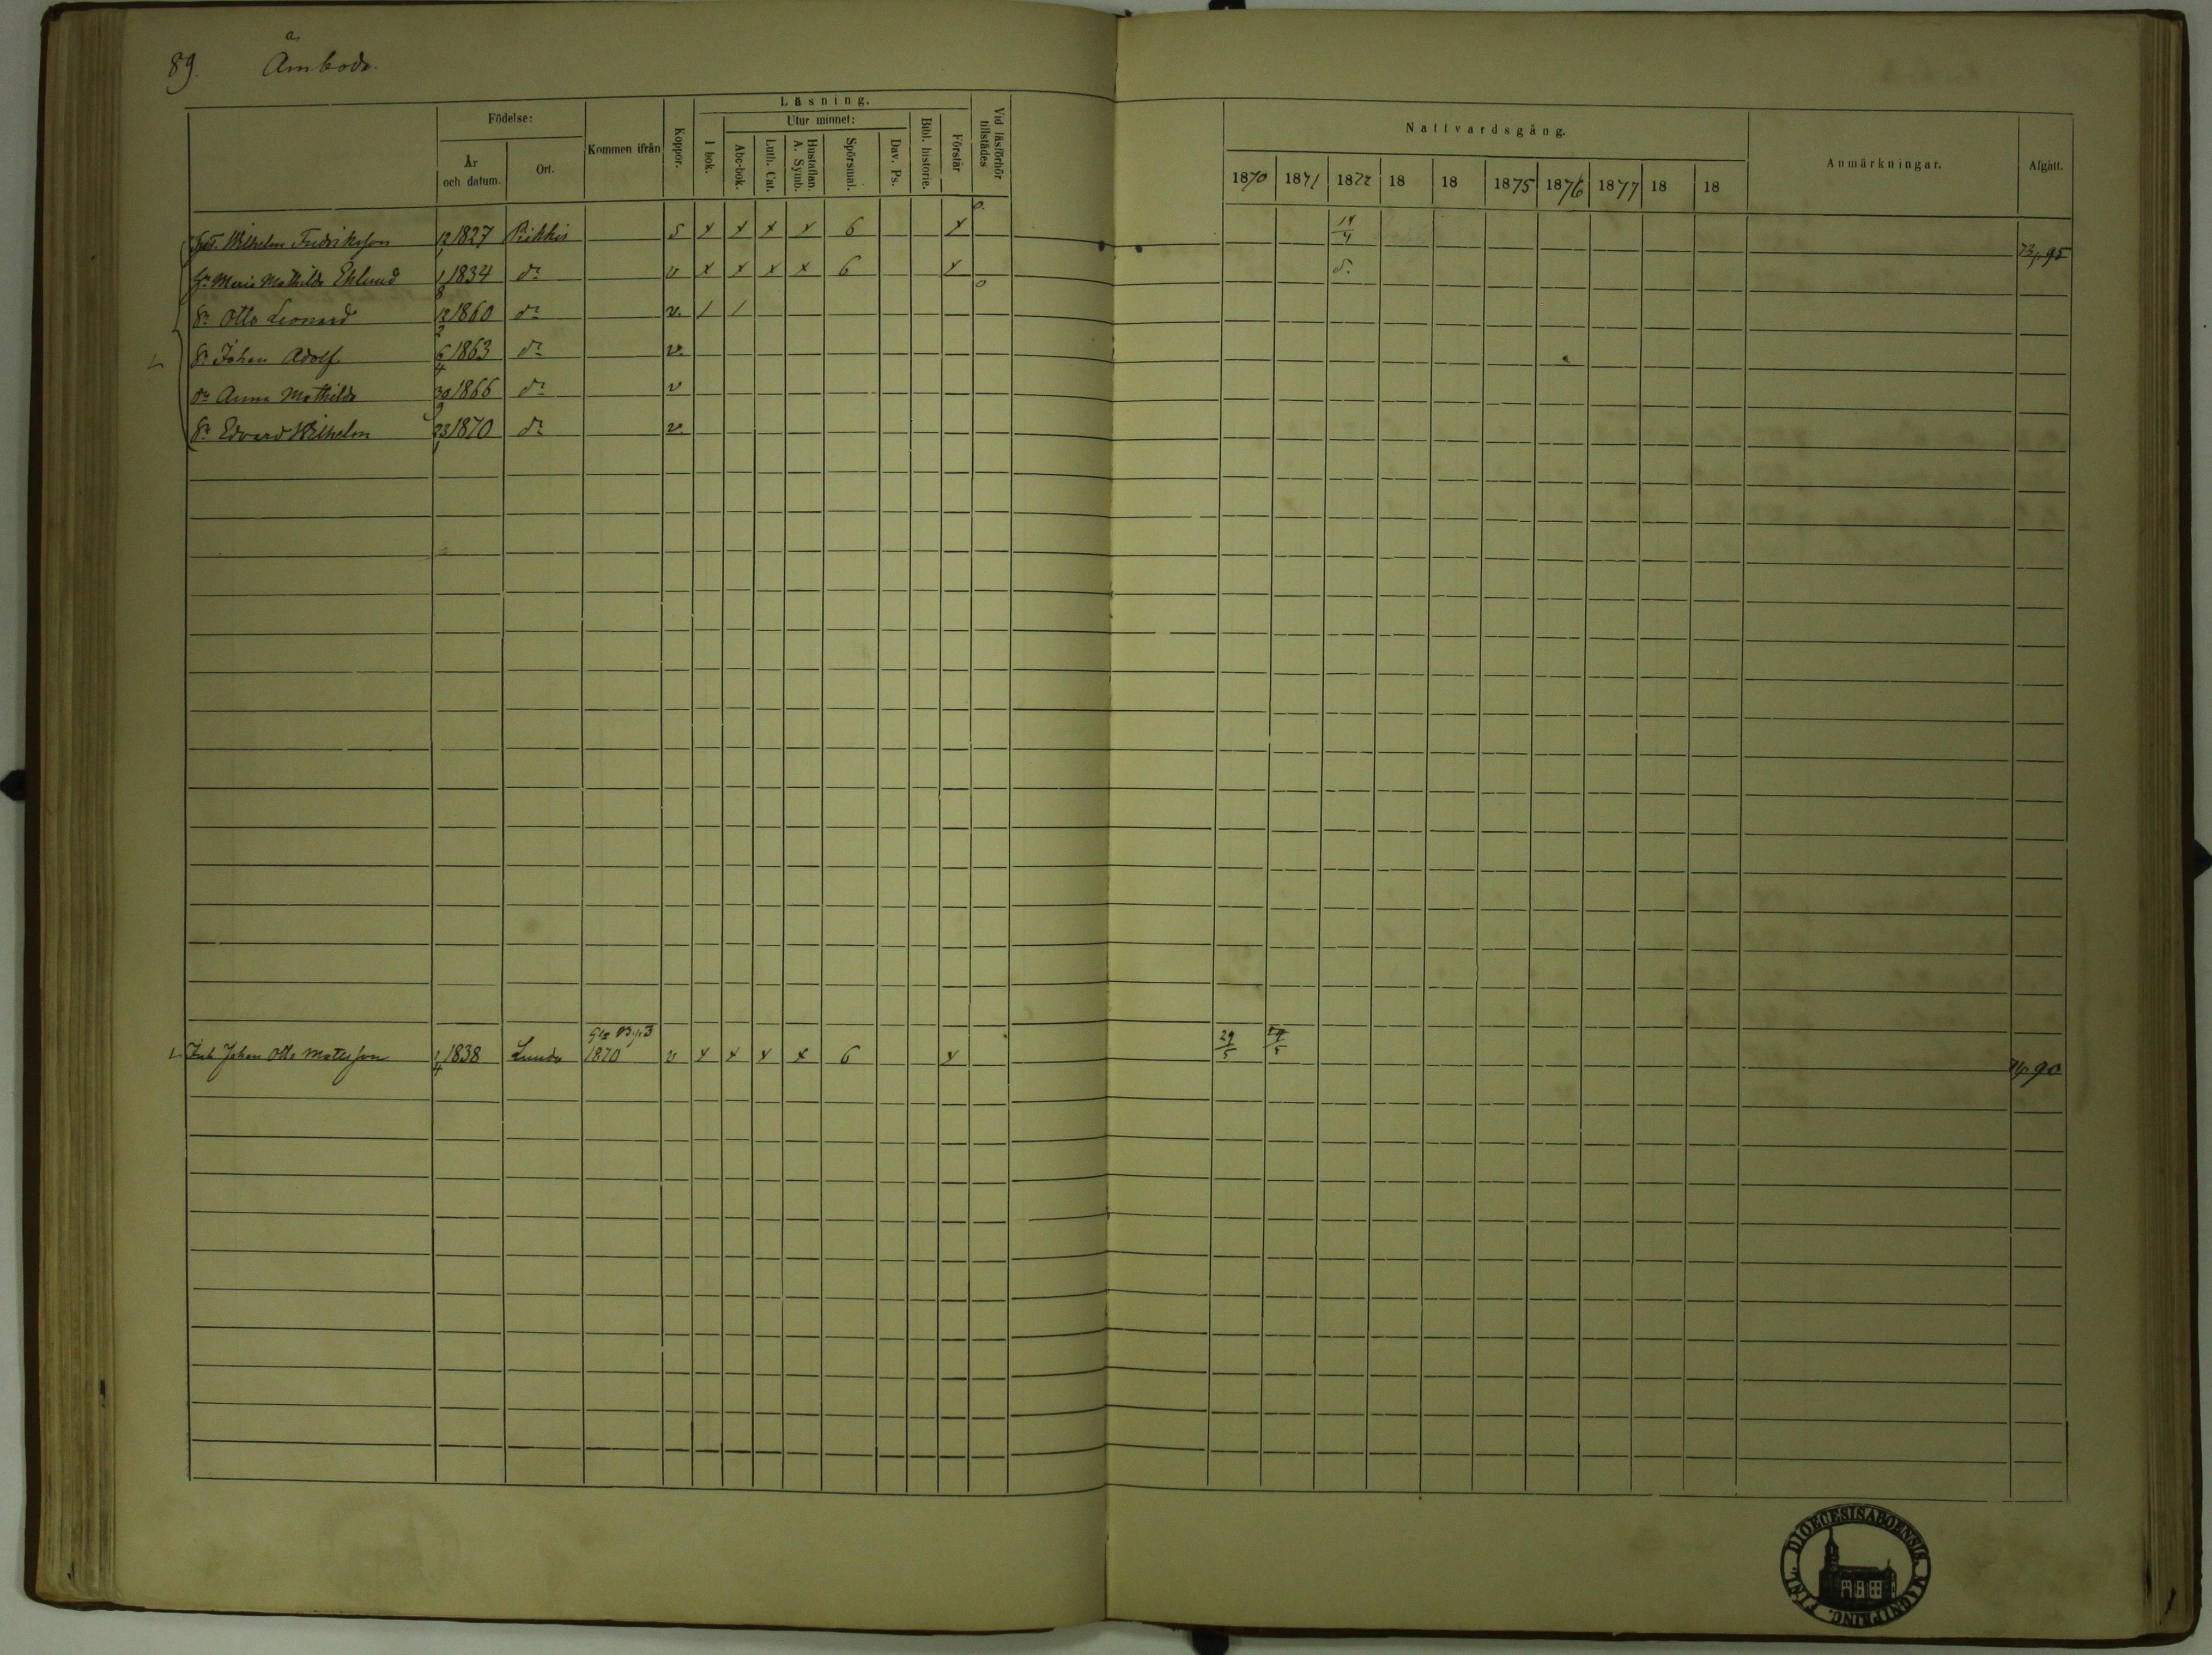 89.
Åmboda.
Födelse:
År och datum.
Ort.
Kommen ifrån
Koppor.
Läsning.
I bok.
Utur minnet:
Abc-bok.
Luth. Cat.
Hustaflan. A. Symb.
Spörsmål.
Dav. Ps.
Bibl. historie.
Förstår
Vid läsförhör tillstädes
Nattvardsgång.
1870 1871 1872 18 18 1875 1876 1877 18 18
Anmärkningar.
Afgått.
Wilhelm Fredriksson 12/1 1827 Piikkis S x x x x 6 x 14/4 73p.95
Maria Mathilda Eklund 1/8 1834 do v x x x x 6 x do
Sn Otto Leonard 12/2 1860 do v. / /
Sn Johan Adolf 6/4 1863 do v.
Dr Anna Mathilda 30/9 1866 do v
Sn Edvard Wilhelm 23/1 1870 do v.
Johan Otto Mattsson 1/4 1838 Lundo 1870 v x x x x 6 x 29/5 90
DIOECESIS ABOENSIS. MAGNI PRINC. FINL.